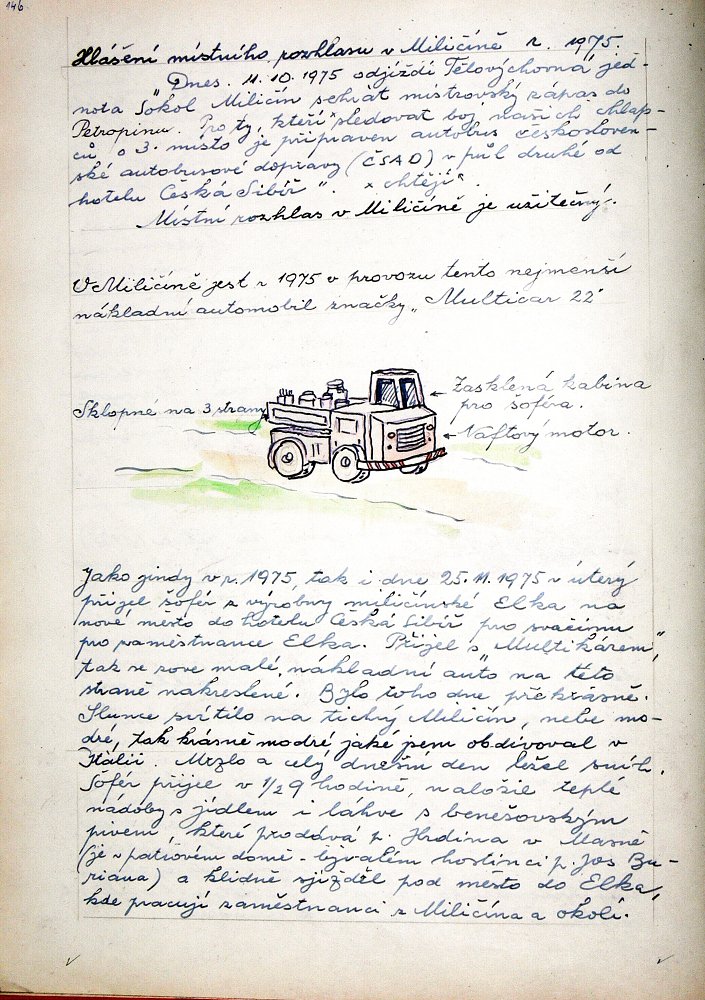 146
Hlášení místního rozhlasu v Miličíně r. 1975.
„Dnes. 11.10.1975 odjíždí Tělovýchovná jed-
nota Sokol Miličín sehrát mistrovský zápas do
Petropinu. Pro ty, kteří × sledovat boj našich chlap-
ců o 3. místo je připraven autobus českosloven-
ské autobusové dopravy (ČSAD) v půl druhé od
hotelu Česká Sibiř". × chtějí".
Místní rozhlas v Miličíně je užitečný.
V Miličíně jest r 1975 v provozu tento nejmenší
nákladní automobil značky „Multicar 22"
Sklopné na 3 strany
← Zasklená kabina
pro šoféra.
← Naftový motor.
Jako jindy v r. 1975, tak i dne 25.11.1975 v úterý
přijel šofér z výrobny miličínské Elka na
nové město do hotelu Česká Sibiř pro svačinu
pro zaměstnance Elka. Přijel s „Multikárem",
tak se zove malé nákladní auto na této
straně nakreslené. Bylo toho dne překrásně.
Slunce svítilo na tichý Miličín, nebe mo-
dré, tak krásně modré jaké jsem obdivoval v
Itálii. Mrzlo a celý dnešní den ležel sníh.
Šofér přijel v 1/2 9 hodině, naložil teplé
nádoby s jídlem i láhve s benešovským
pivem které prodává p. Hrdina v Masně
(je v patrovém domě - bývalém hostinci p. Jos Bu-
riana) a klidně sjížděl pod město do Elka,
kde pracují zaměstnanci z Miličína a okolí.